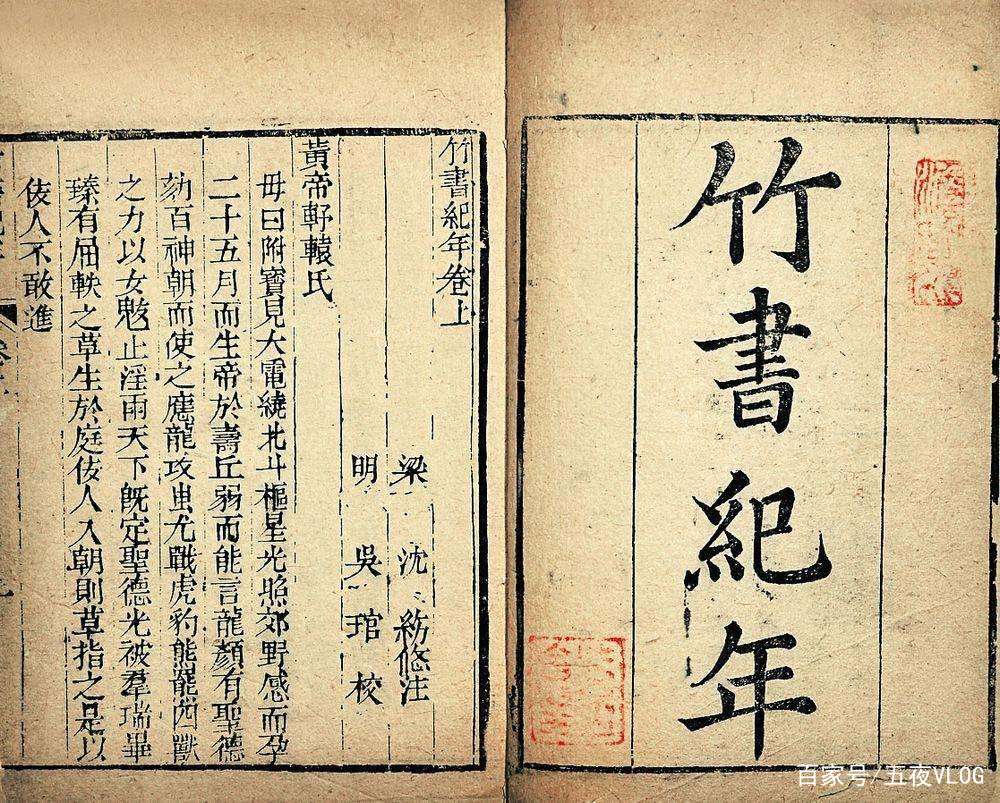 竹書紀年
竹書紀年卷上
梁 沈 注
明 吳 琯 校
黃帝軒轅氏
母曰附寶見大電繞北斗樞星光照郊野感而孕
二十五月而生帝於壽丘弱而能言龍顏有聖德
劾百神朝而使之應龍攻蚩尤戰虎豹熊羆四獸
之力以女魃止淫雨天下既定聖德光被羣瑞畢
臻有屈軼之草生於庭佞人入朝則草指之是以
佞人不敢進
百家号/五夜VLOG